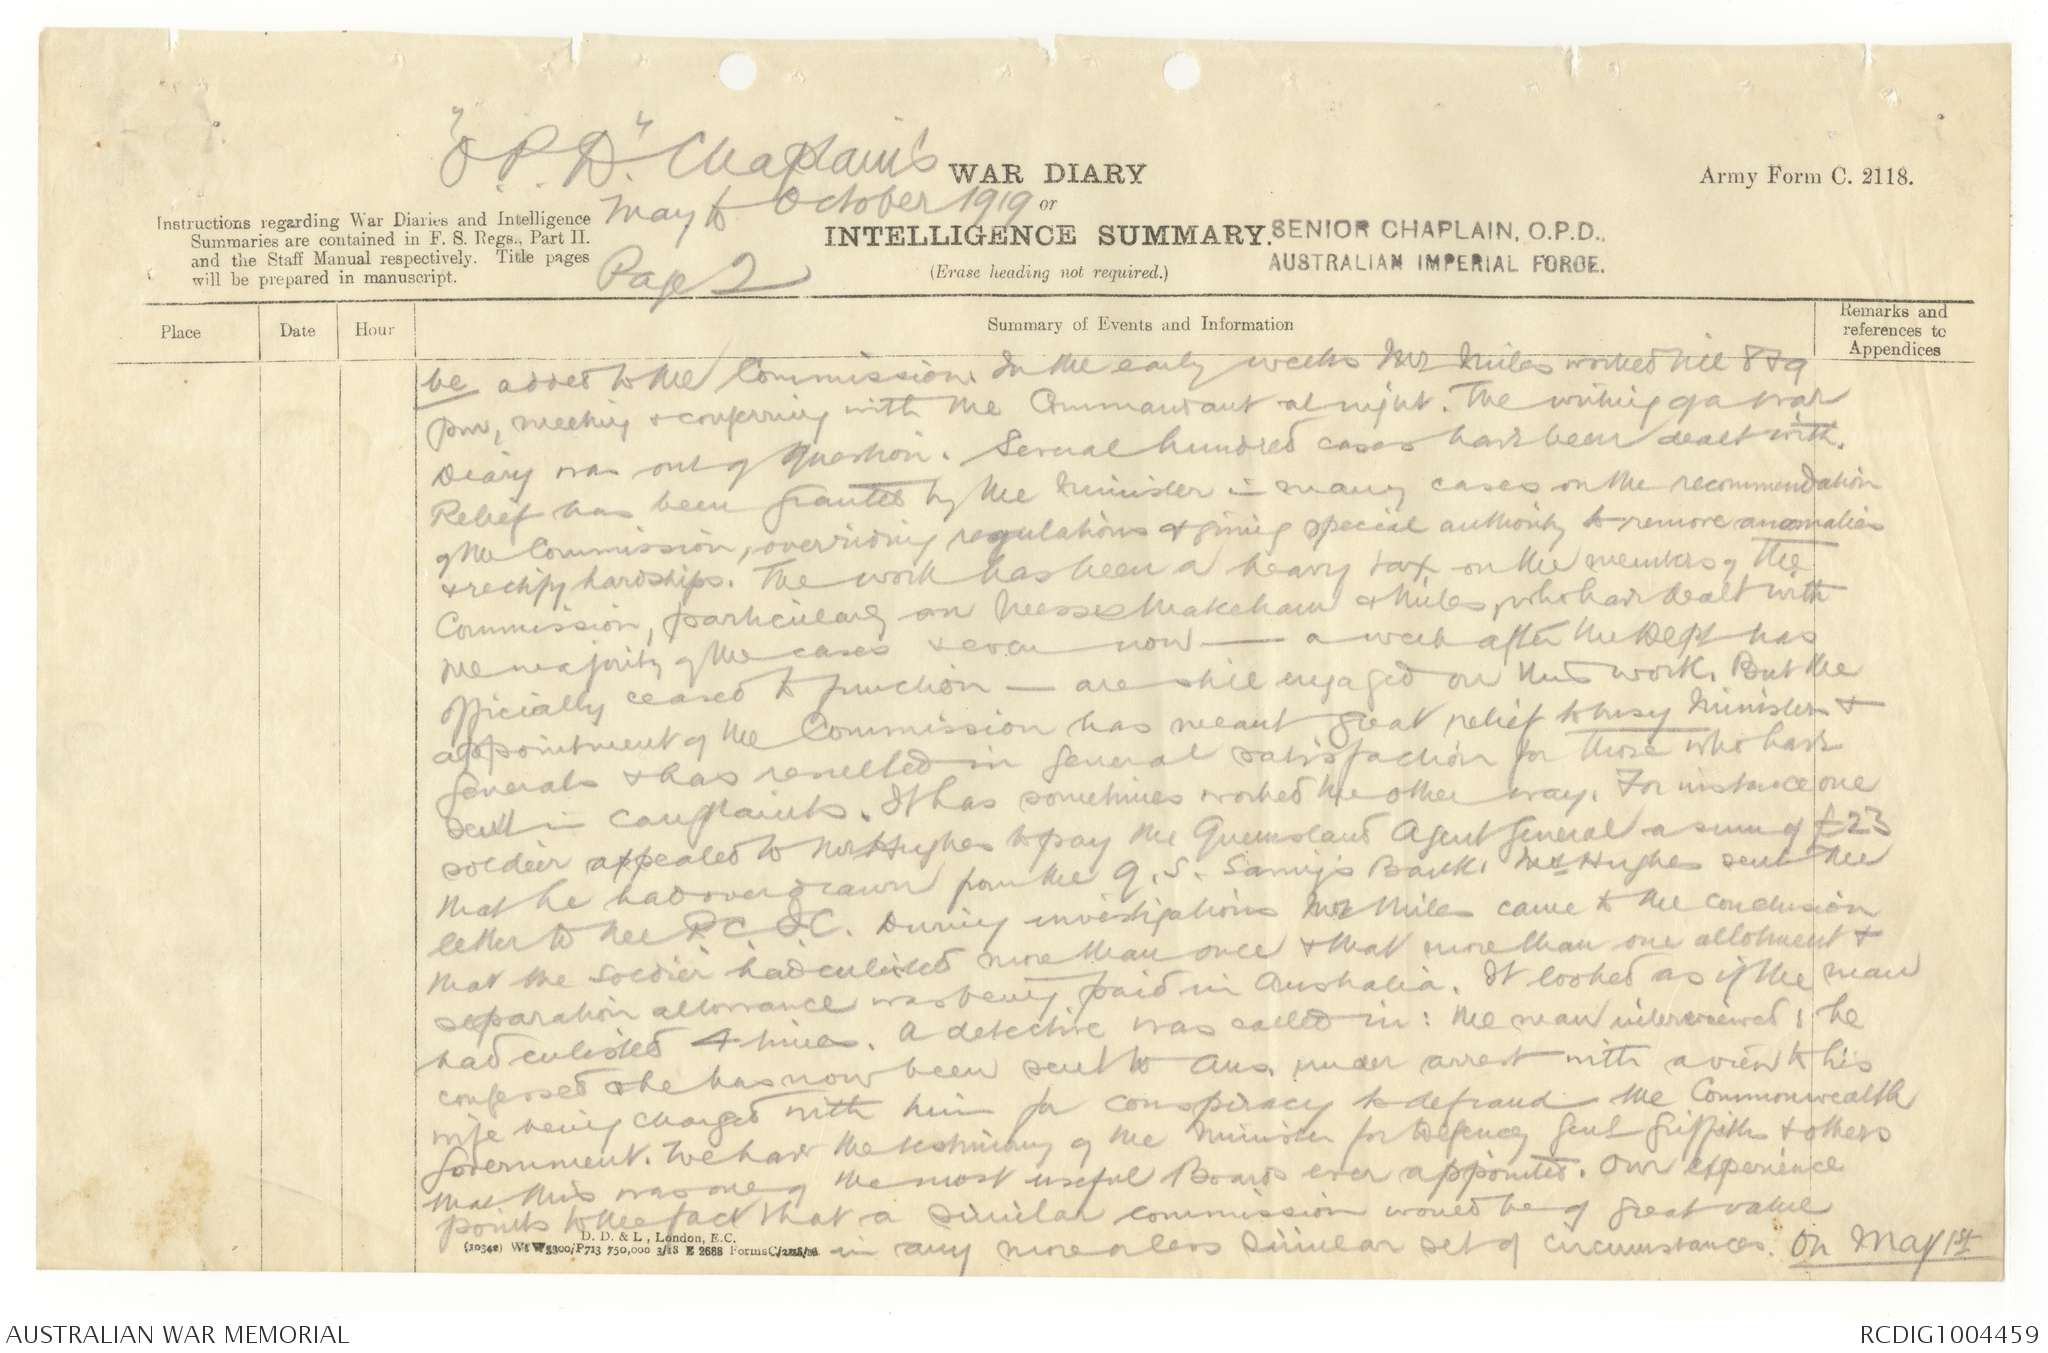 "O.P.D." Chaplain's
May to October 1919
Page 2
WAR DIARY
or
INTELLIGENCE SUMMARY.
(Erase heading not required.)
Army Form C. 2118.
SENIOR CHAPLAIN, O.P.D.,
AUSTRALIAN IMPERIAL FORCE.
Instructions regarding War Diaries and Intelligence
Summaries are contained in F. S. Regs., Part II.
and the Staff Manual respectively. Title pages
will be prepared in manuscript.
Place
Date
Hour
Summary of Events and Information
Remarks and
references to
Appendices
be added to the Commission. In the early weeks Mr Miles worked till 8 & 9
pm, meeting & conferring with the Commandant at night. The writing of a War
Diary was out of question. Several hundred cases have been dealt with.
Relief has been granted by the Minister in many cases on the recommendation
of the Commission, overriding regulations & giving special authority to remove anomalies
& rectify hardships. The work has been a heavy tax on the members of the
Commission, particularly on Messrs Makeham & Miles, who have dealt with
the majority of the cases & even now — a week after the Dept has
officially ceased to function — are still engaged on this work. But the
appointment of the Commission has meant great relief to busy Ministers &
Generals & has resulted in general satisfaction for those who have
sent in complaints. It has sometimes worked the other way. For instance one
soldier appealed to Mr Hughes to pay the Queensland Agent General a sum of £23
that he had overdrawn from the Q. S. Savings Bank. Mr Hughes sent the
letter to the P.C. & C. During investigations Mr Miles came to the conclusion
that the soldier had enlisted more than once & that more than one allotment &
separation allowance was being paid in Australia. It looked as if the man
had enlisted 4 times. A detective was called in: the man interviewed; he
confessed & he has now been sent to Aus. under arrest with a view to his
wife being charged with him for conspiracy to defraud the Commonwealth
Government. We have the testimony of the Minister for Defence, Genl Griffiths & others
that this was one of the most useful Boards ever appointed. Our experience
points to the fact that a similar commission would be of great value
in any more or less similar set of circumstances. On May 1st
D. D. & L., London, E.C.
(10340) Wt W5300/P713 750,000 3/18 E 2688 Forms C/2118/16
AUSTRALIAN WAR MEMORIAL
RCDIG1004459